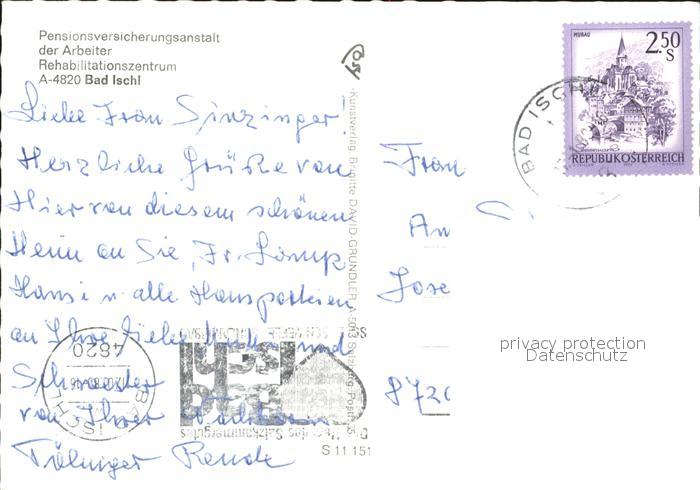 Pensionsversicherungsanstalt
der Arbeiter
Rehabilitationszentrum
A-4820 Bad Ischl
Liebe Frau Sinzinger!
Herzliche Grüße von
Hier von diesem schönen
Heim an Sie, Fr.
Hansi u. alle Hausparteien
an Ihre liebe Mutter und
Schwester
von Ihrer
Renate
Kunstverlag Brigitte DAVID-GRÜNDLER, A-5013 Salzburg
S 11.151
Frau
An
Jose
8720
MURAU
2.50
S
REPUBLIK ÖSTERREICH
BAD ISCHL
4820
BAD ISCHL
des Salzkammergutes
privacy protection
Datenschutz